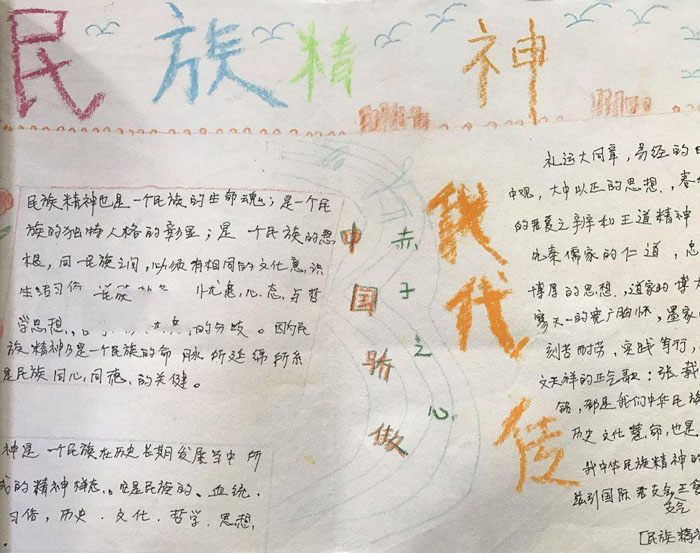 民族精神
民族精神也是一个民族的生命魂；是一个民
族的独特人格的彰显；是一个民族的思
根，同一民族之间，必须有相同的文化意识
生活习俗
学思想，的分歧。因为民
族精神乃是一个民族的命脉所延绵所系
是民族同心，同德，的关键。
神是一个民族在历史长期发展当中所
成的精神特态。它是民族的、血统，
习俗，历史．文化．哲学．思想，
中国骄傲
赤子之心
代传
礼运大同章，易经的
中观，大中以正的思想，春
的王道精神
先秦儒家的仁道，忠
博厚的思想，道家的博大
的宽广胸怀，墨家
刻苦耐劳，实践笃行，
文天祥的正气歌：张载
铭，都是我们中华民族
历史文化慧命，也是
我中华民族精神的
兹引国际
[民族精